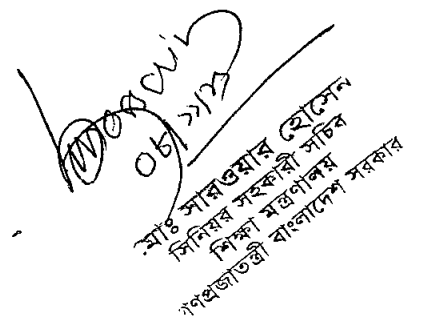 ০৮/১১/২১
মোঃ সারওয়ার হোসেন
সিনিয়র সহকারী সচিব
শিক্ষা মন্ত্রণালয়
গণপ্রজাতন্ত্রী বাংলাদেশ সরকার